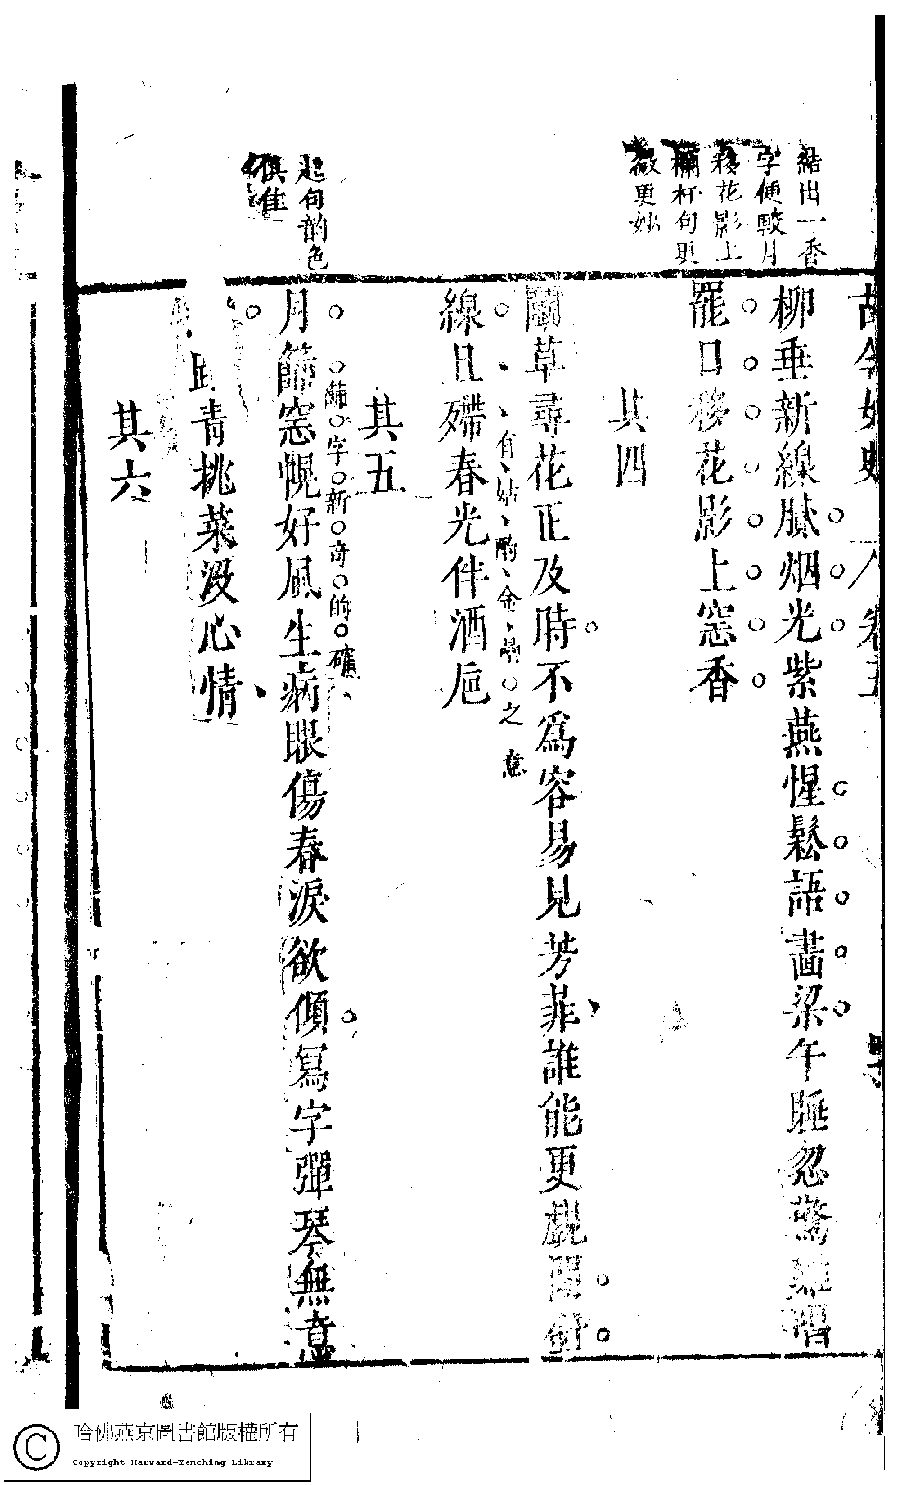 結出一香
字便較月
移花影上
欄杆句更
更妙
古今女史 卷五
柳垂新線膩烟光紫燕惺鬆語畵梁午睡忽驚雞唱
罷日移花影上窓香
其四
鬬草尋花正及時不爲容易見芳菲誰能更覷閒針
線且殢春光伴酒巵
有姑酌金罍之意
其五
月篩窓幌好風生病眼傷春淚欲傾寫字彈琴無意
踏青挑菜没心情
篩字新奇的確
起句韵色
俱佳
其六
哈佛燕京圖書館版權所有
Copyright Harvard-Yenching Library